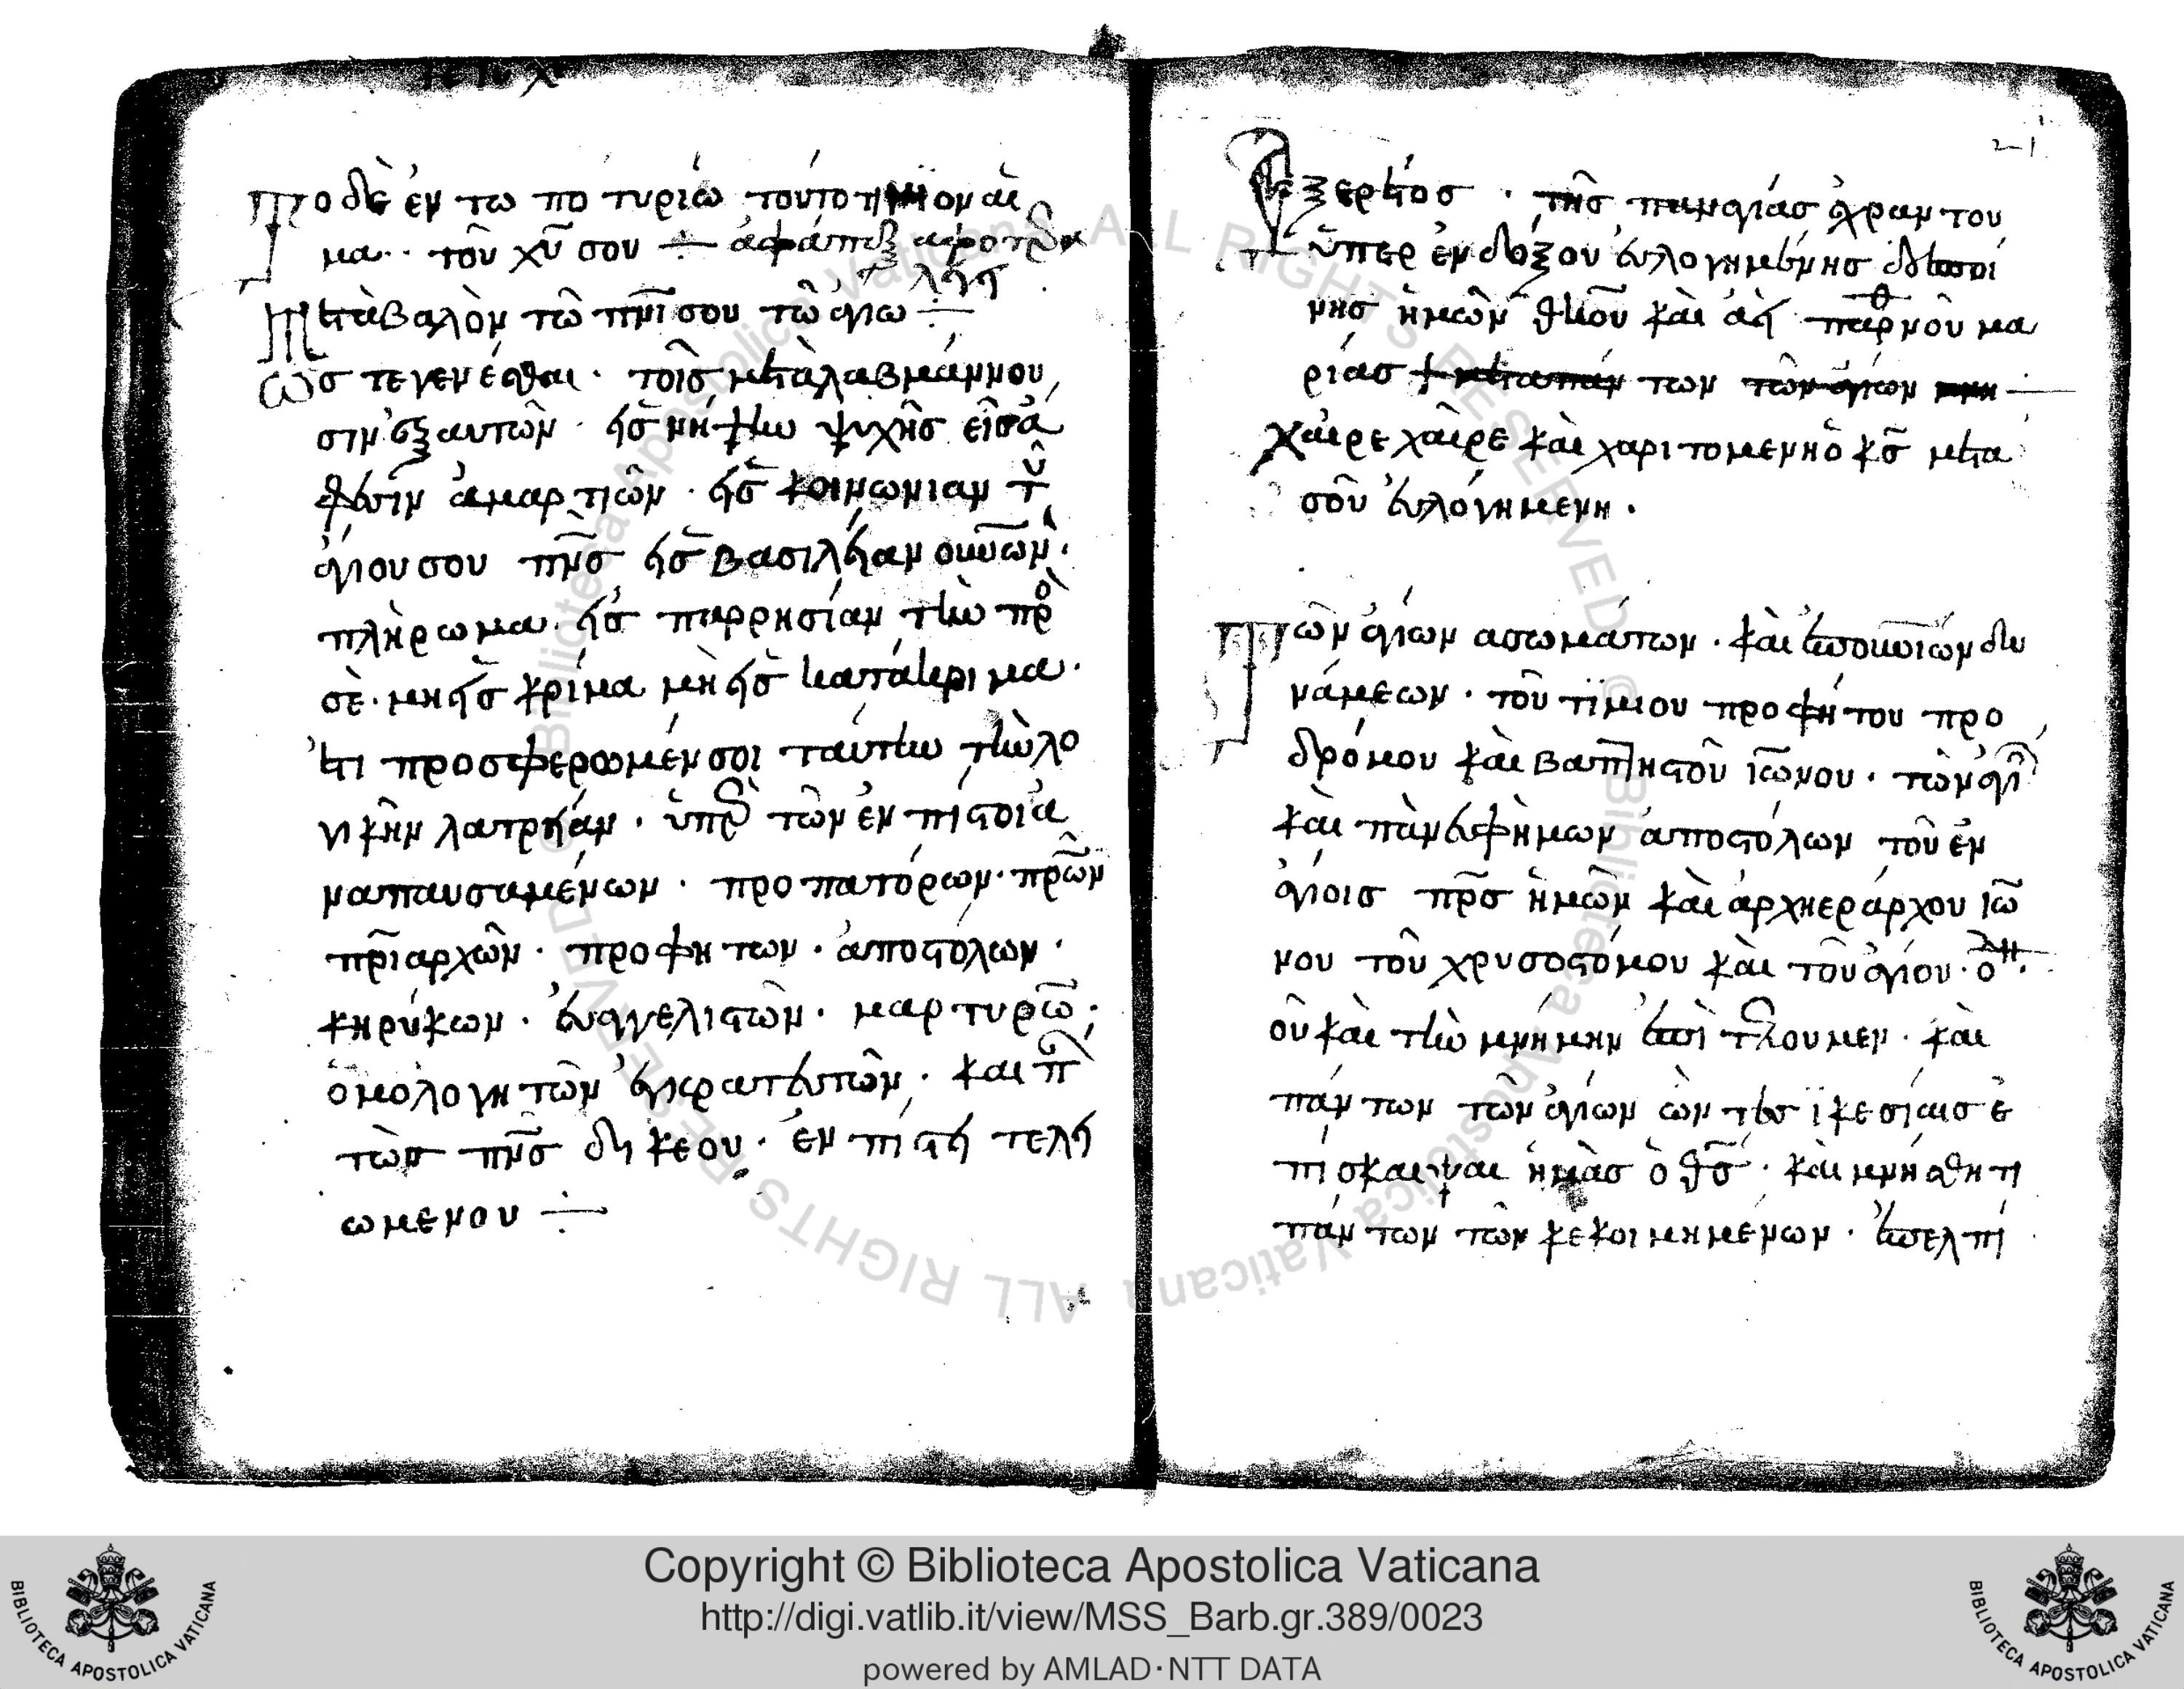 Το δὲ ἐν τω ποτυρίω τούτο τίμιον αἷ
μα·· τοῦ χῦ σου ÷
Μεταβαλὸν τῶ πνῖ σου τῶ ἁγίω ÷
Ὡσ τε γενέσθαι · τοῖσ μεταλαβμάννου
σιν εἰσ νήψιν ψυχῆσ εἰσ ἄ
φεσιν ἁμαρτιῶν · εἰσ κοινωνίαν τοῦ
ἁγίου σου πν̅σ εἰσ βασιλείαν οὐν̅ῶν·
πλὴρωμα · εἰσ παρρησίαν τὴν πρὸ
σὲ · μη εἰσ κρίμα μὴ εἰσ κατάκριμα ·
ἔτι προσφερωμέν σοι ταύτην τὴν λο
γικὴν λατρείαν · ὑπὲρ τῶν ἐν πίστοι ἀ
ναπαυσαμένων · προπατόρων · πρ̅ῶν
πρ̅ιαρχῶν · προφητων · ἀποστόλων ·
κηρύκων · εὐαγγελιστῶν · μαρτυρῶ̅ ·
ὁμολογητῶν ἐγκρατευτῶν · και π
τὼσ πν̅σ δηκεου · ἐν πίστει τελει
ωμενου ÷
Ἐξερέτοσ · τῆσ παναγίασ ἀχραντου
ὑπερ ἐνδόξου εὐλογημένησ δεσποί
νησ ἡμῶν θκ̅ου και ἀει παρθνοῦ μα
ρίασ των
Χαίρε χαῖρε και χαριτομενη ὁ κσ̅ μετα
σοῦ εὐλόγημενη ·
Τῶν ἁγίων ασωμάτων · και ἐπουν̅ιων δυ
νάμεων · τοῦ τϊμιου προφήτου προ
δρόμου και βαπτηστοῦ ιω̅νου · τῶν ἁγί
και πὰνευφὴμων ἀποστόλων τοῦ ἐν
ἁγίοισ πρ̅σ ἡμῶν και ἀρχηεράρχου ιω̅
νου τοῦ χρυσοστόμου και τοῦ ἁγίου ·
οὗ και τὴν μνήμην ἐπι τελουμεν · και
πάντων τῶν ἁγίων ὧν τεσ ϊκεσίαισ ἐ
πισκαιψαι ἡμᾶσ ὁ θσ̅ · και μνησθητι
πάντων τῶν κεκοιμημένων · ἐπελπί
Copyright © Biblioteca Apostolica Vaticana
http://digi.vatlib.it/view/MSS_Barb.gr.389/0023
powered by AMLAD·NTT DATA